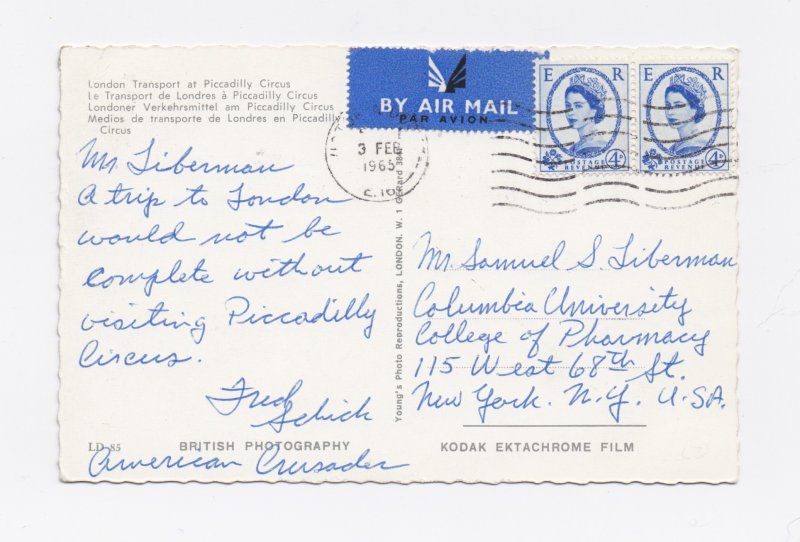 London Transport at Piccadilly Circus
Le Transport de Londres à Piccadilly Circus
Londoner Verkehrsmittel am Piccadilly Circus
Medios de transporte de Londres en Piccadilly
Circus
BY AIR MAIL
PAR AVION
E R
POSTAGE
REVENUE
4D
E R
POSTAGE
REVENUE
4D
3 FEB
1965
Mr Liberman
A trip to London
would not be
complete without
visiting Piccadilly
Circus.
Fred
Schick
American Crusader
LD 85
BRITISH PHOTOGRAPHY
Young's Photo Reproductions, LONDON. W. 1 GERrard
Mr. Samuel S. Liberman
Columbia University
College of Pharmacy
115 West 68th St.
New York. N.Y. U.S.A.
KODAK EKTACHROME FILM